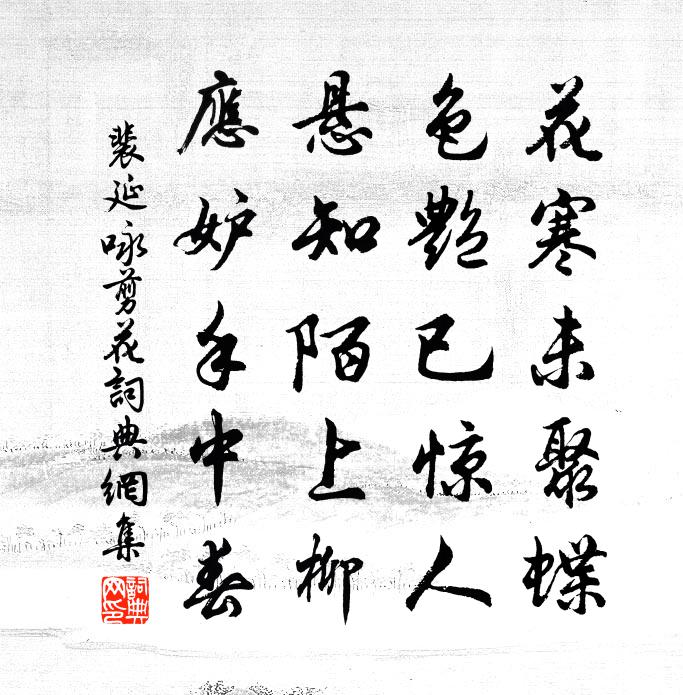 花寒未聚蝶
色艷已惊人
悬知陌上柳
應妒手中春
裴延咏剪花詞典網集
詞典网印